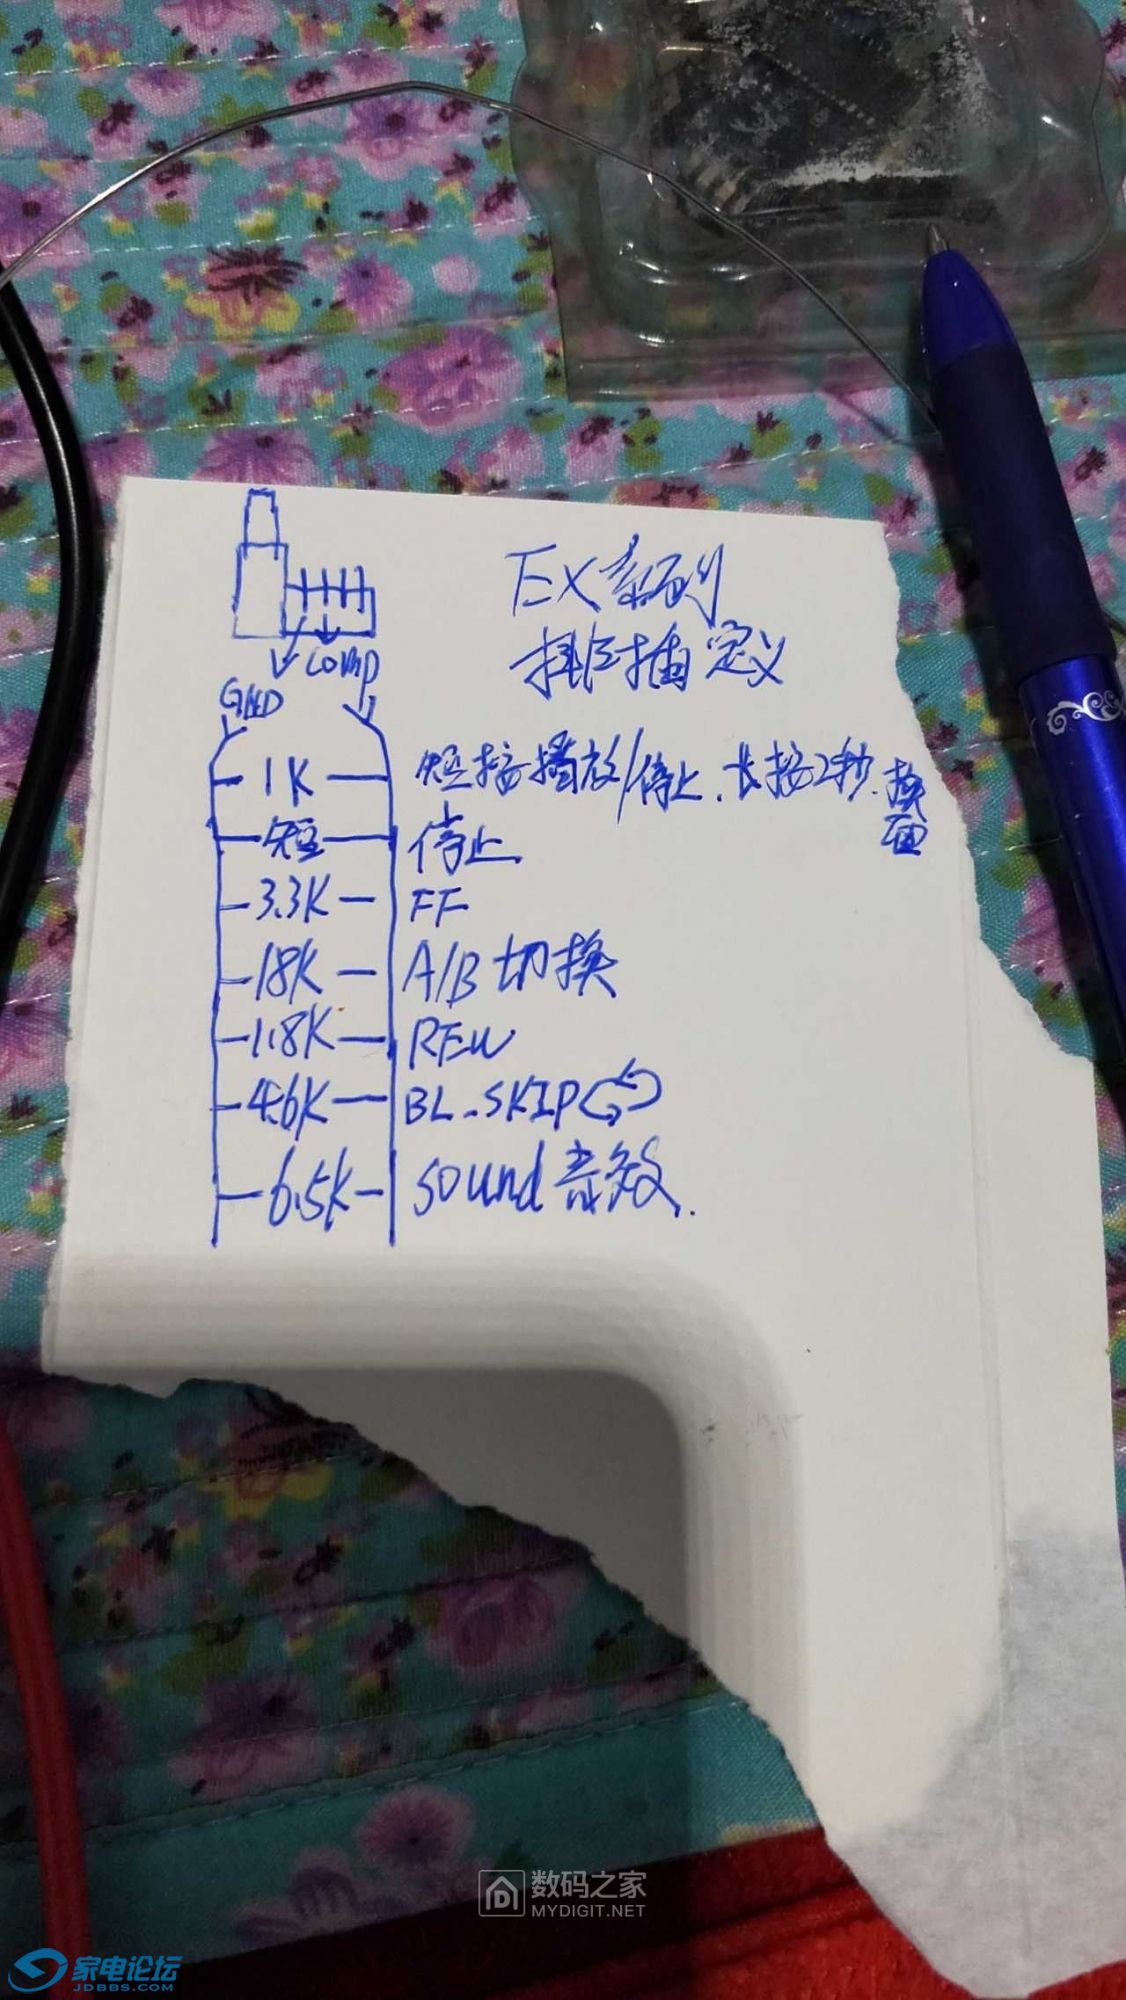 EX系列
排插定义
COMP
GND
1K 短按播放/停止.长按2秒.换面
短 停止
3.3K FF
18K A/B切换
1.8K REW
4.6K BL-SKIP
6.5K sound音效.
数码之家
MYDIGIT.NET
家电论坛
JDBBS.COM